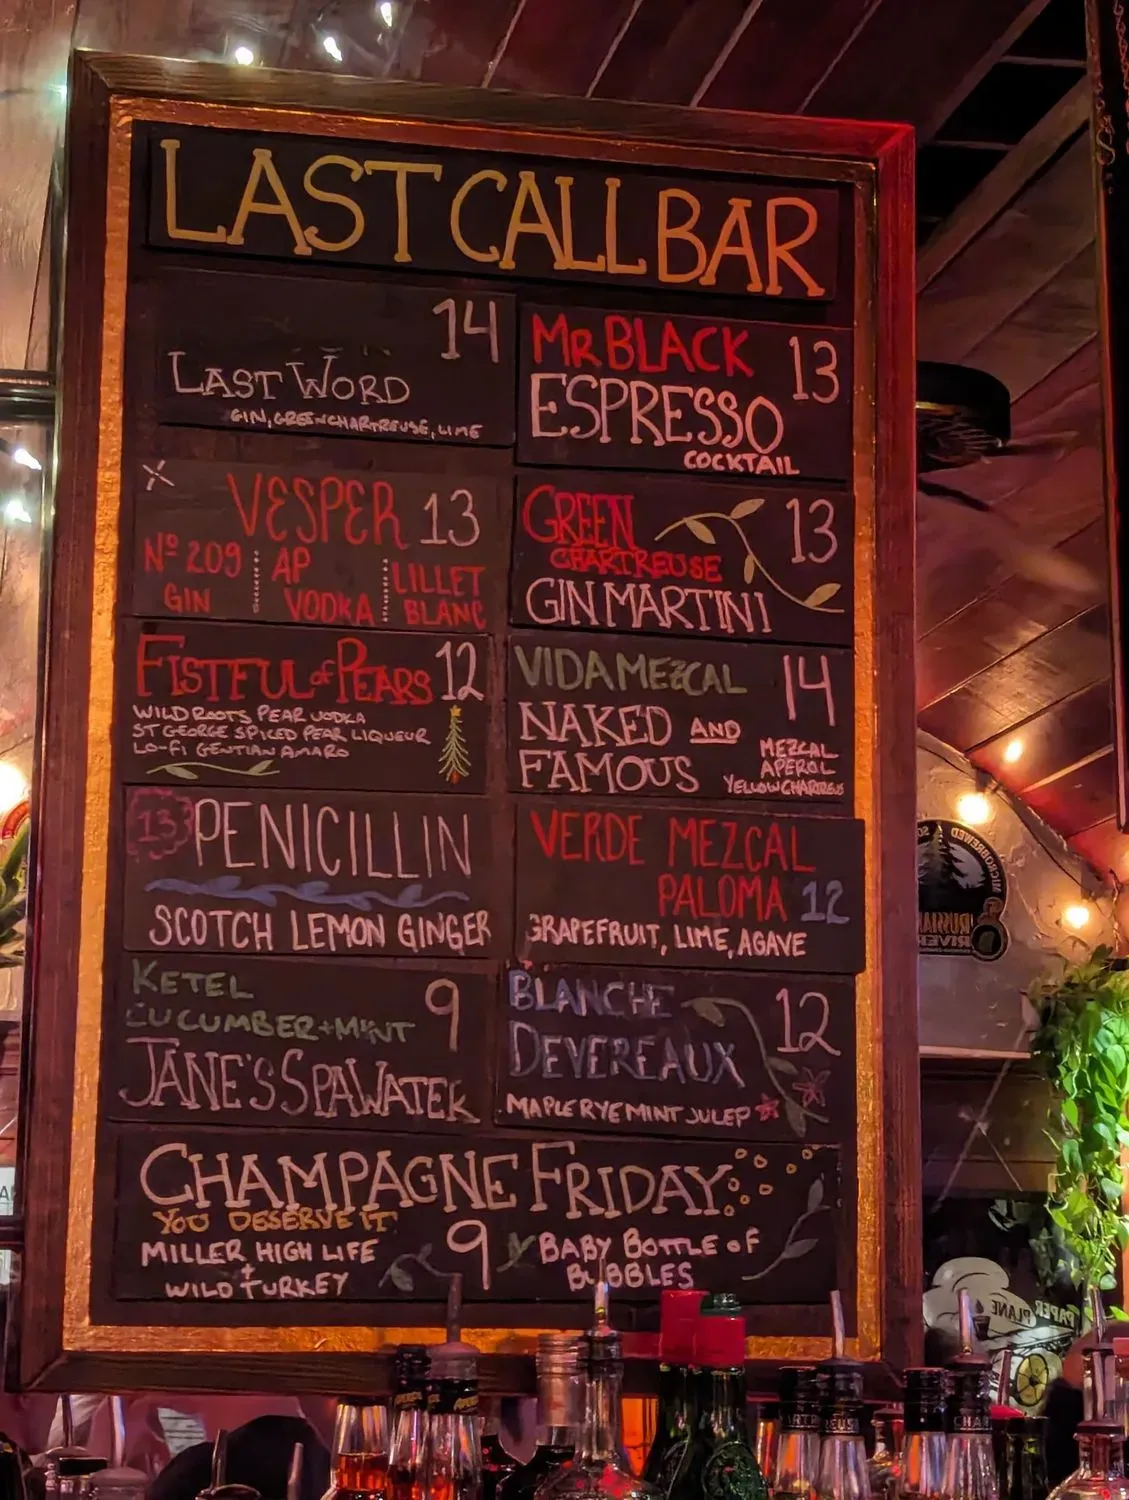 LAST CALL BAR
14
LAST WORD
GIN, GREEN CHARTREUSE, LIME
MR BLACK 13
ESPRESSO
COCKTAIL
VESPER 13
Nº 209 AP LILLET
GIN VODKA BLANC
GREEN 13
CHARTREUSE
GIN MARTINI
FISTFUL of PEARS 12
WILD ROOTS PEAR VODKA
ST GEORGE SPICED PEAR LIQUEUR
LO-FI GENTIAN AMARO
VIDA MEZCAL 14
NAKED AND
FAMOUS
MEZCAL
APEROL
YELLOW CHARTREUS
13 PENICILLIN
SCOTCH LEMON GINGER
VERDE MEZCAL
PALOMA 12
GRAPEFRUIT, LIME, AGAVE
KETEL 9
CUCUMBER + MINT
JANE'S SPAWATER
BLANCHE 12
DEVEREAUX
MAPLE RYE MINT JULEP
CHAMPAGNE FRIDAY
YOU DESERVE IT
MILLER HIGH LIFE
+
WILD TURKEY
9
BABY BOTTLE OF
BUBBLES
RUSSIAN
RIVER
PAPER PLANE